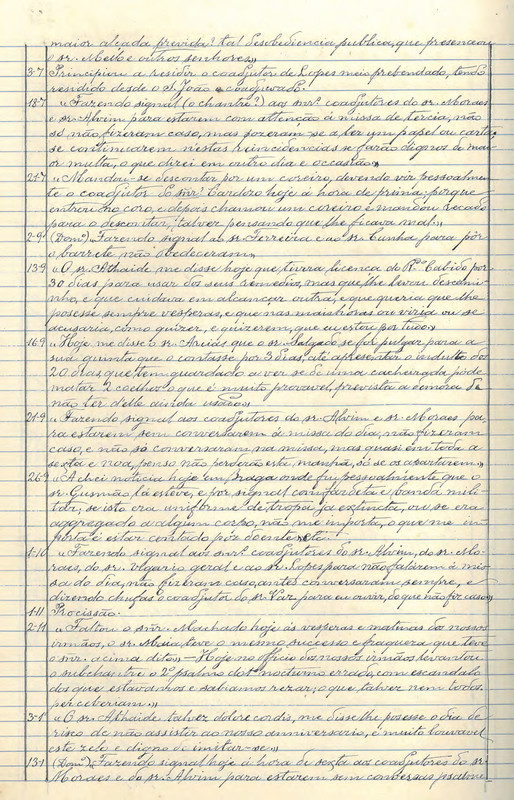 maior alçada previda? tal desobediencia publica, que presenceou
o sr. Mello e outros senhores,,
3-7 Principiou a residir o coadjutor de Lopes meio prebendado, tendo
residido desde o S. João o coadjuvado.
18-7 "Fazendo signal (o chantre?) aos snrs coadjutores do sr. Moraes
e sr. Alvim para estarem com attenção á missa de Tercia, não
só não fizeram caso, mas pozeram-se a ler um papel ou carta;
se continuarem nestas reincidencias se farão dignos de mai-
or multa, o que direi em outro dia e occasião.,,
21-7 "Mandou-se descontar por um coreiro, devendo vir pessoalmen-
te o coadjutor do snr. Cardozo hoje á hora de prima, porque
entrou no coro, e depois chamou um coreiro e mandou recado
para o descontar, talvez pensando que lhe ficava mal,,
2-9 (Domo) "Fazendo signal ao sr. Ferreira e ao sr. Cunha para pôr
o barrete não obedeceram,,
13-9 "O sr. Athaide me disse hoje que tivera licença do Rmo Cabido por
30 dias para usar dos seus remedios, mas que lhe levou descami-
nho, e que cuidava em alcançar outra, e que queria que lhe
posesse sempre vesperas, e que nas mais horas ou viria ou se
acusaria, como quizer, e quizerem, que eu estou por tudo.,,
16-9 "Hoje me disse o sr. Arcias que o sr. Salgado se foi pulgar para a
sua quinta que o contasse por 3 dias, até apresentar o indulto dos
20 dias que tem guardado a ver se de uma cacheirada póde
matar 2 coelhos o que é muito provavel, prevista a demora de
não ter d'elle ainda usado.,,
21-9 "Fazendo signal aos coadjutores do sr. Alvim e sr. Moraes pa-
ra estarem sem conversarem á missa do dia, não fizeram
caso, e não só conversaram na missa, mas quasi em toda a
sexta e noa, penso não perderão esta manhã, só se os apartarem.,,
26-9 "Achei noticia hoje em Braga onde fui pessoalmente que o
sr. Gusmão lá esteve, e por signal com fardeta e banda mili-
tar; se isto era uniforme de tropa já extincta, ou se era
aggregado a algum corpo, não me importa, o que me im-
porta é estar contado por doente etc.,,
1-10 "Fazendo signal aos snrs coadjutores do sr. Alvim, do sr. Mo-
raes, do sr. Vigario geral e ao sr. Lopes para não falárem á mis-
sa do dia, não fizeram caso, antes conversaram sempre, e
dizendo chufas o coadjutor do sr. Vaz para eu ouvir, do que não fiz caso,,
1-11 Procissão.
2-11 "Faltou o snr. Machado hoje ás vesperas e matinas dos nossos
irmãos, o sr. Maia teve o mesmo successo e fraqueza que teve
o snr. acima dito,, — Hoje no officio dos nossos irmãos levantou
o subchantre o 2o psalmo do 1o nocturno errado, com escandalo
dos que estavamos e sabiamos rezar; o que talvez nem todos
perceberiam.,,
3-1 "O sr. Athaide talvez dolore cordis, me disse lhe posesse o dia de
risco de não assistir ao nosso anniversario, é muito louvavel
este zelo e digno de imitar-se.,,
13-1 (Domo) "Fazendo signal hoje á hora de sexta aos coadjutores do sr.
Moraes e do sr. Alvim para estarem sem conversas psalme-